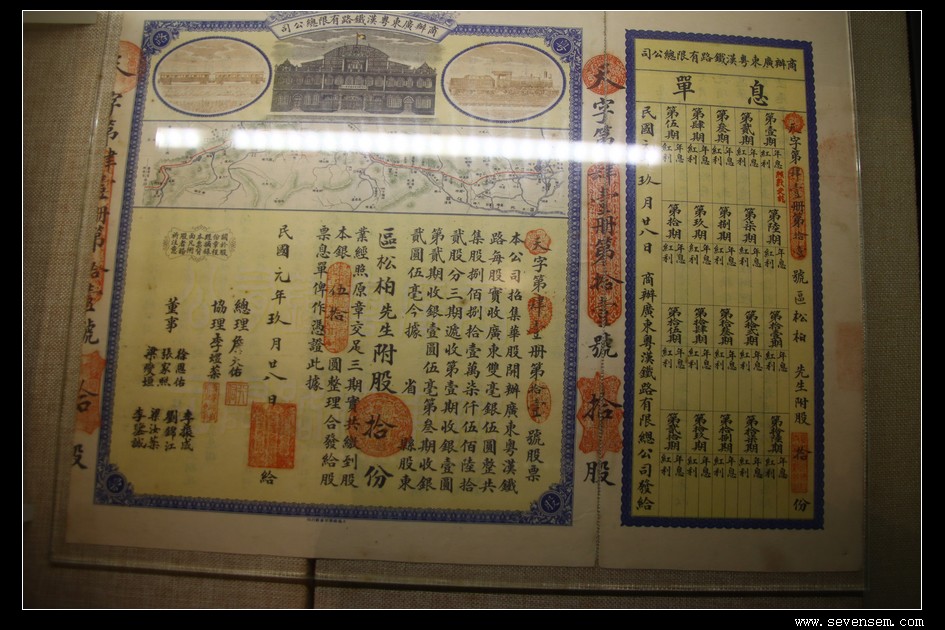 商辦廣東粵漢鐵路有限總公司
天字第肆壹冊第拾壹號股票
本公司招集華股開辦廣東粵漢鐵
路每股實收廣東雙毫銀伍圓整共
集股捌佰捌拾壹萬柒仟伍佰陸拾
貳股分三期遞收第壹期收銀壹圓
第貳期收銀壹圓伍毫第叁期收銀
貳圓伍毫今據 省 縣股東
區松柏先生附股拾份
業經照原章交足三期實共繳到股
本銀伍拾圓整理合發給股
票息單俾作憑證此據
民國元年玖月廿八日給
總理
協理李煜
董事
徐應佑
張家熙
李
劉錦江
天字第肆壹冊第拾壹號 拾股
商辦廣東粵漢鐵路有限總公司
息單
天字第肆壹冊第拾壹號區松柏先生附股拾份
第壹期 年息 紅利
第貳期 年息 紅利
第叁期 年息 紅利
第肆期 年息 紅利
第伍期 年息 紅利
第陸期 年息 紅利
第柒期 年息 紅利
第捌期 年息 紅利
第玖期 年息 紅利
第拾期 年息 紅利
第拾壹期 年息 紅利
第拾貳期 年息 紅利
第拾叁期 年息 紅利
第拾肆期 年息 紅利
第拾伍期 年息 紅利
第拾陸期 年息 紅利
第拾柒期 年息 紅利
第拾捌期 年息 紅利
第拾玖期 年息 紅利
第貳拾期 年息 紅利
民國 玖月廿八日 商辦廣東粵漢鐵路有限總公司發給
www.sevensem.com